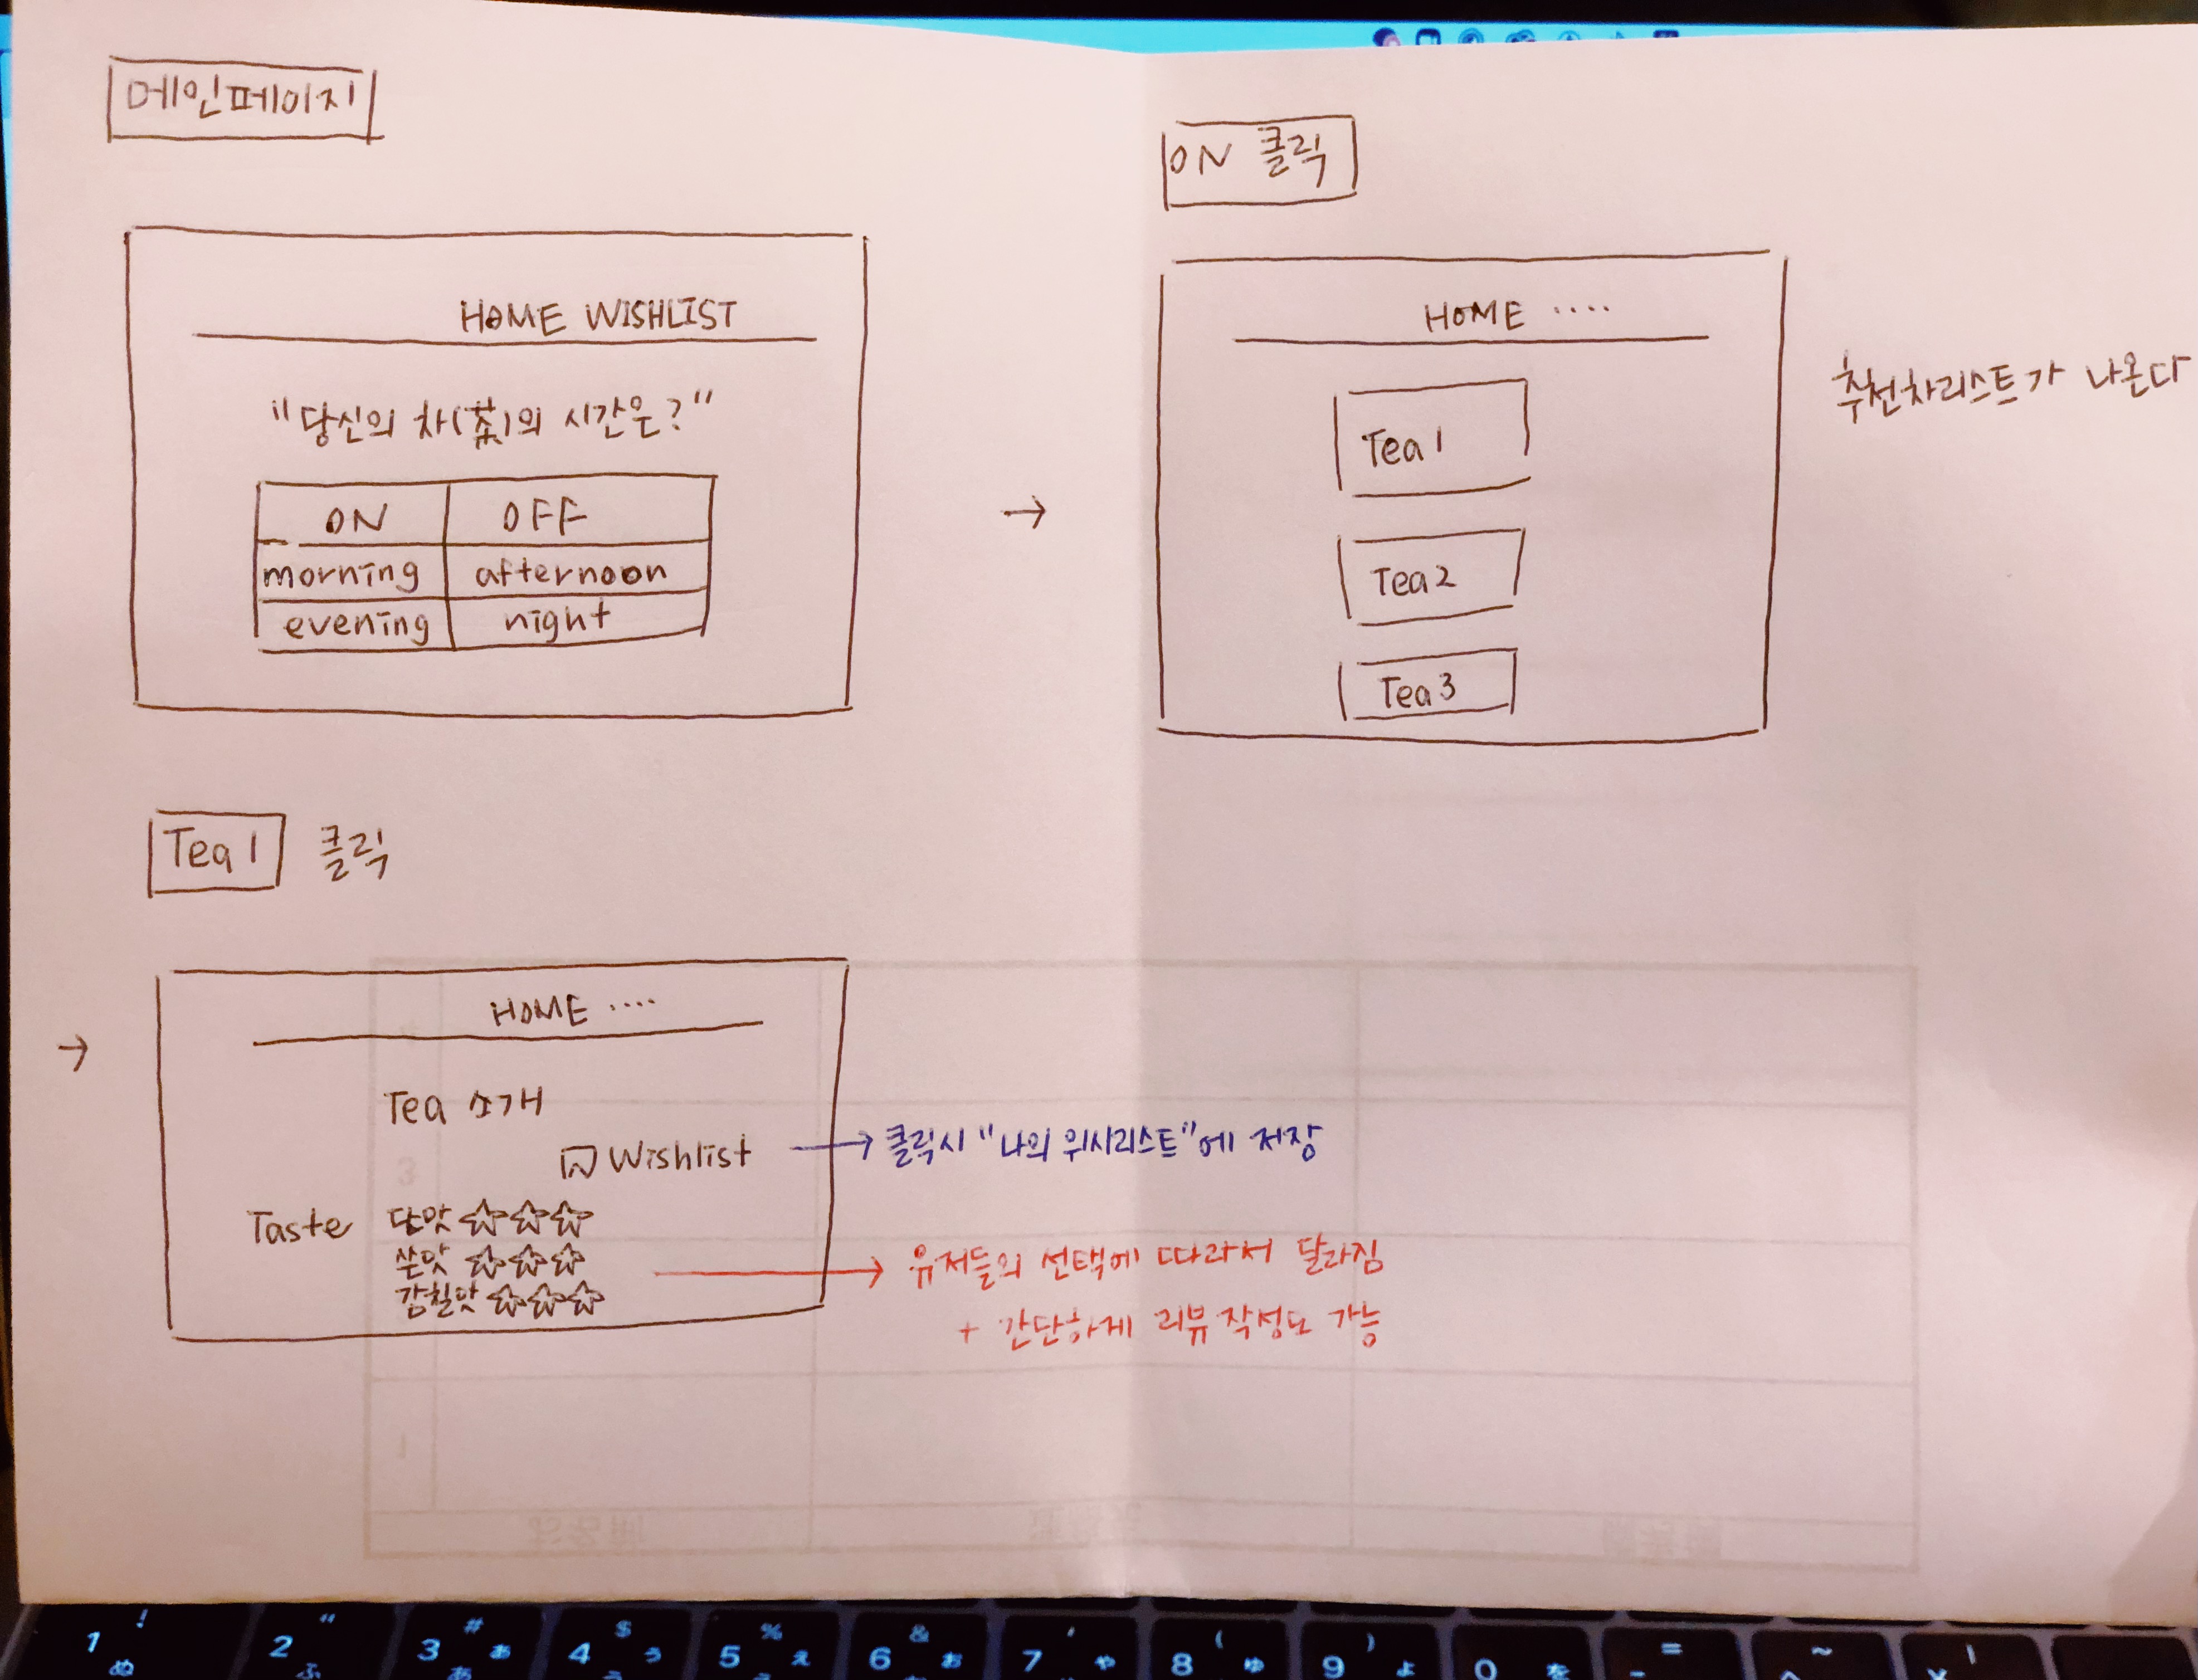 메인페이지
HOME WISHLIST
"당신의 차(茶)의 시간은?"
ON OFF
morning afternoon
evening night
→
ON 클릭
HOME ....
Tea 1
Tea 2
Tea 3
추천차리스트가 나온다
Tea 1 클릭
→
HOME ....
Tea 소개
Wishlist → 클릭시 "나의 위시리스트"에 저장
Taste 단맛 ☆☆☆
쓴맛 ☆☆☆
감칠맛 ☆☆☆
→ 유저들의 선택에 따라서 달라짐
+ 간단하게 리뷰작성도 가능
3
1
! " # $ % & ' ( ) = ~ |
1 2 3 4 5 6 7 8 9 0 -
ぬ ふ あ ぁ う ぅ え ぇ や ゅ ょ を